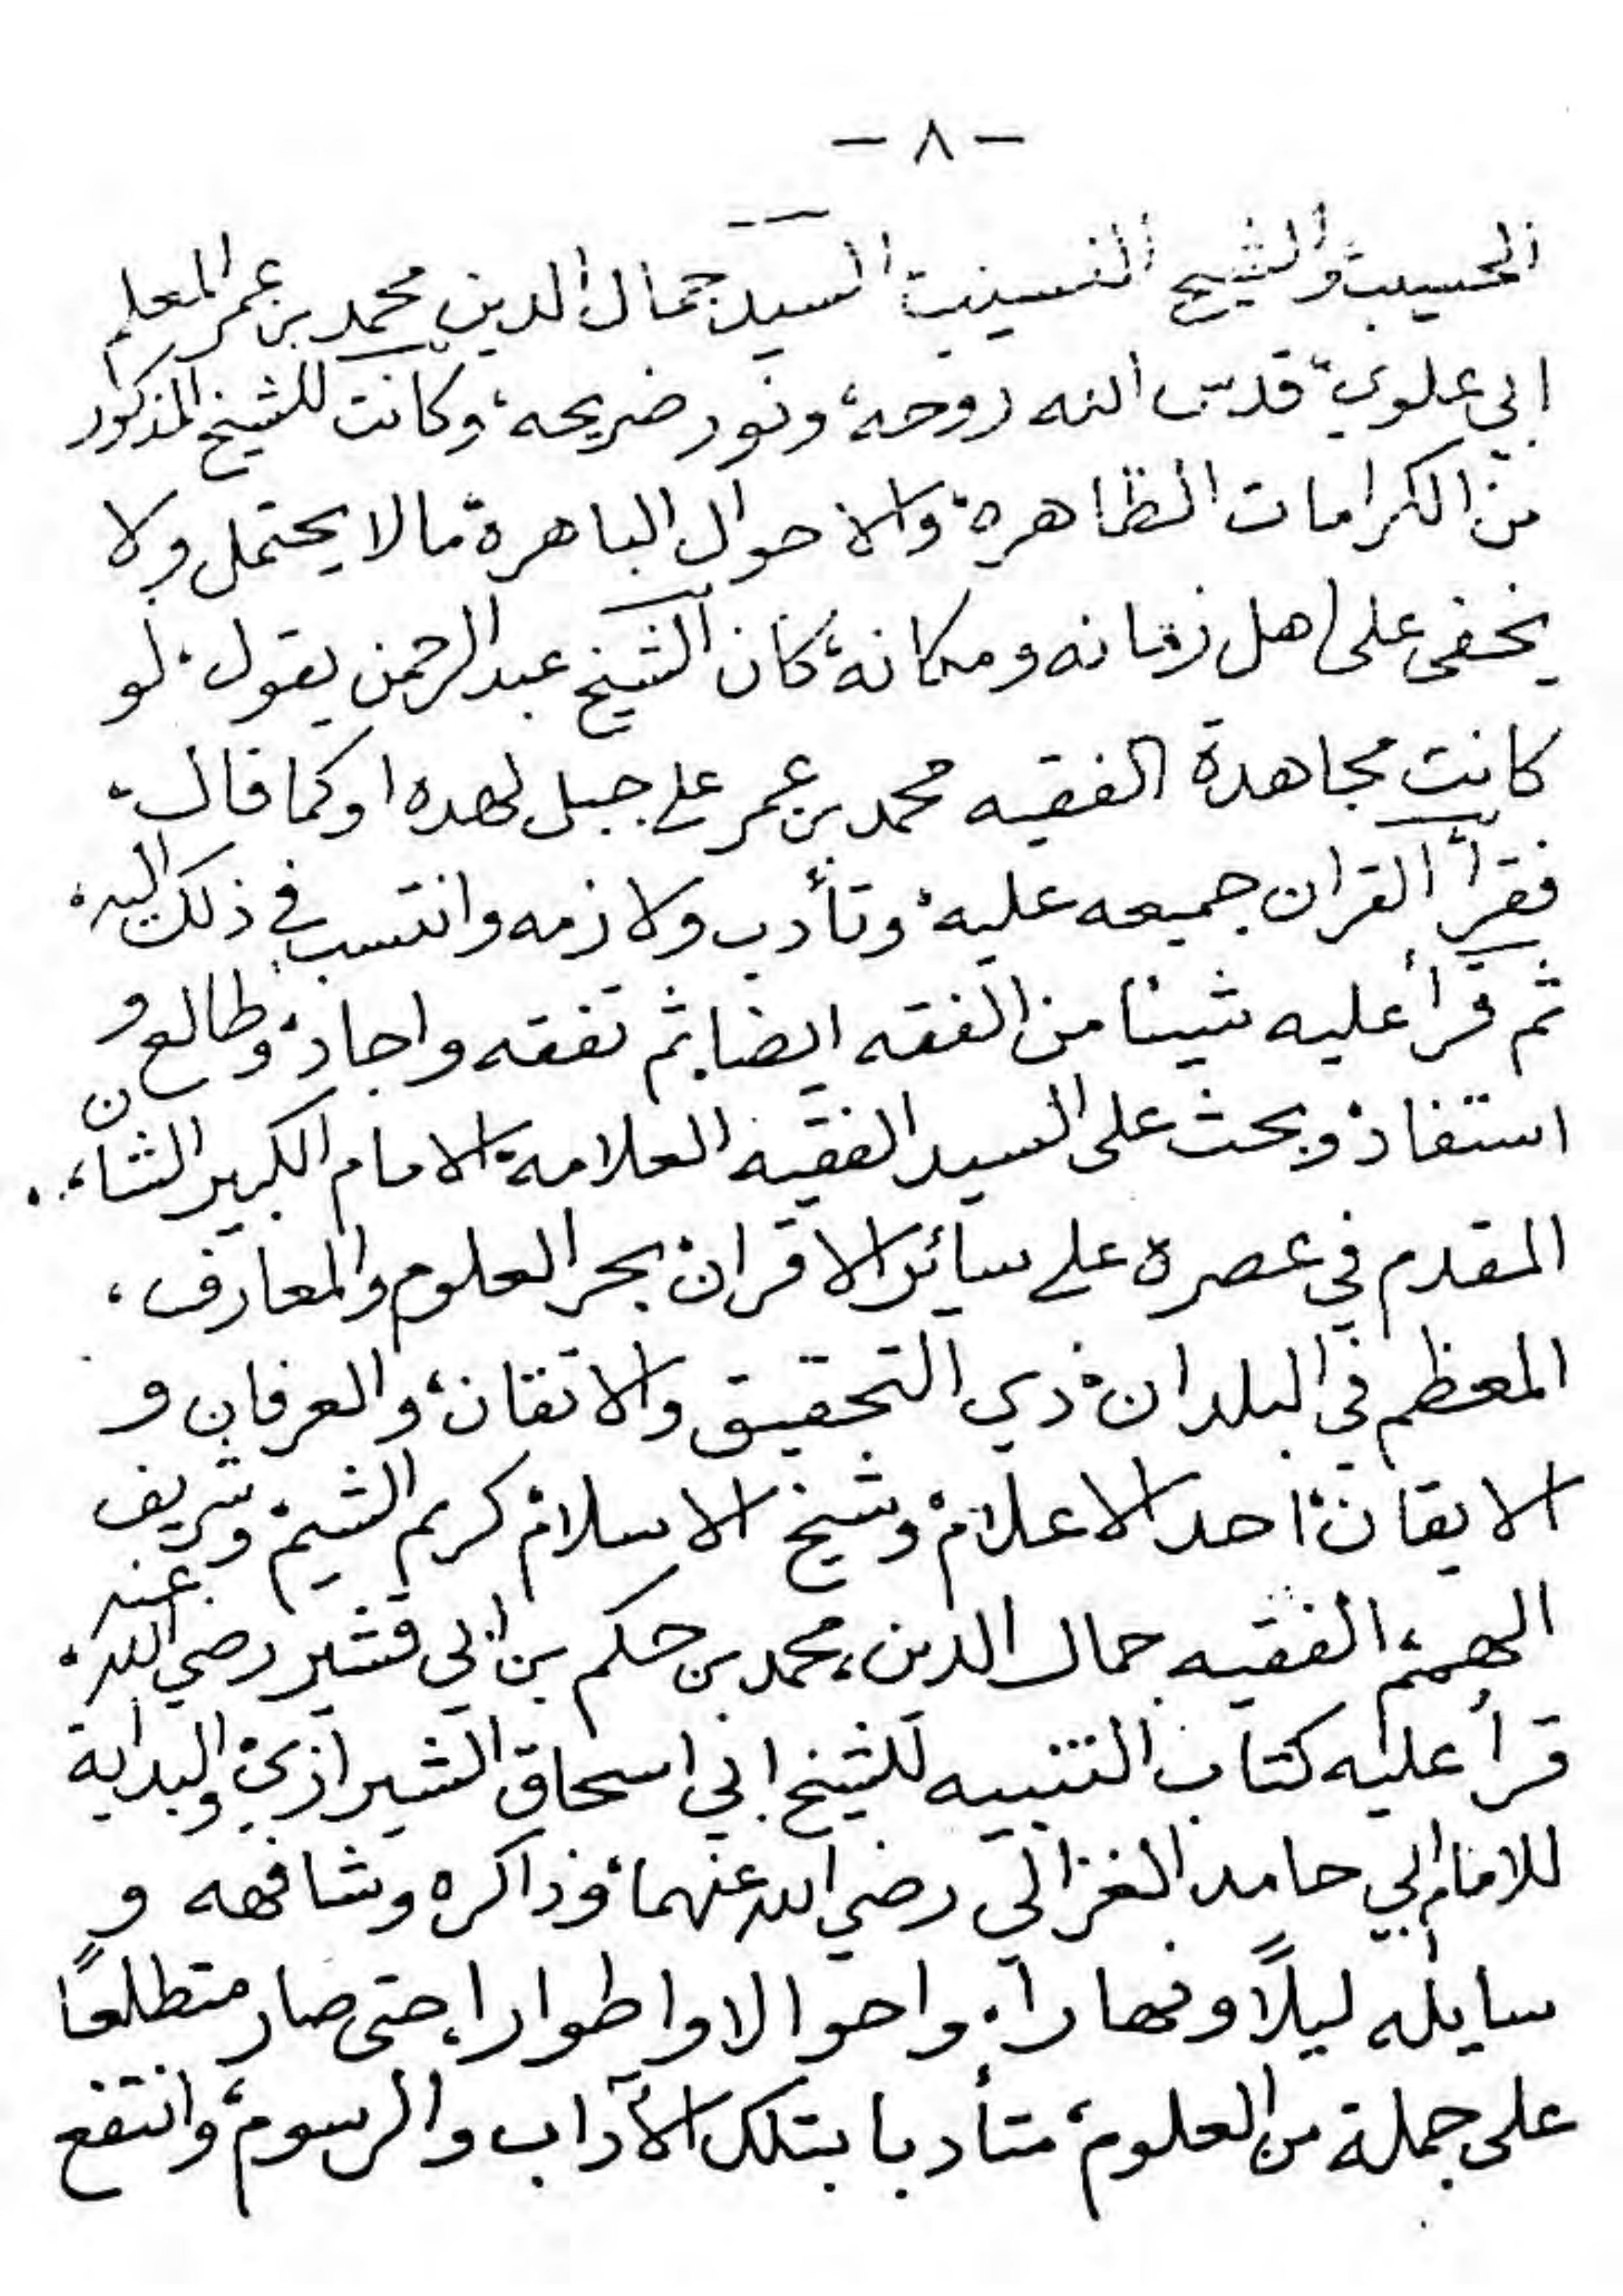 - ٨ -
الحسيب والشيخ النسيب السيد جمال الدين محمد بن عمر المعلم
ابي علوي، قدس الله روحه، ونور ضريحه، وكانت للشيخ المذكور
من الكرامات الظاهرة، والاحوال الباهرة، مالا يحتمل ولا
يخفى على اهل زمانه ومكانه، كان الشيخ عبد الرحمن يقول، لو
كانت مجاهدة الفقيه محمد بن عمر على جبل لهده اوكما قال،
فقرأ القران جميعه عليه، وتأدب ولازمه وانتسب في ذلك اليه،
ثم قرأ عليه شيئا من الفقه ايضا، ثم تفقه واجاد، وطالع و
استفاد، وبحث على السيد الفقيه العلامه، الامام الكبير الشأن،
المقدم في عصره على سائر الاقران، بحر العلوم والمعارف،
المعظم في البلدان، ذي التحقيق والاتقان، والعرفان و
الايقان، احد الاعلام، وشيخ الاسلام، كريم الشيم، وشريف
الهمم، الفقيه جمال الدين، محمد بن حكم بن ابي قشير رضي الله عنه،
قرأ عليه كتاب التنبيه للشيخ ابي اسحاق الشيرازي، والبداية
للامام ابي حامد الغزالي رضي الله عنهما، وذاكره وشافهه و
سايله ليلًا ونهارا، واحوالا واطوارا، حتى صار متطلعًا
على جملة من العلوم، متأدبا بتلك الآداب والرسوم، وانتفع